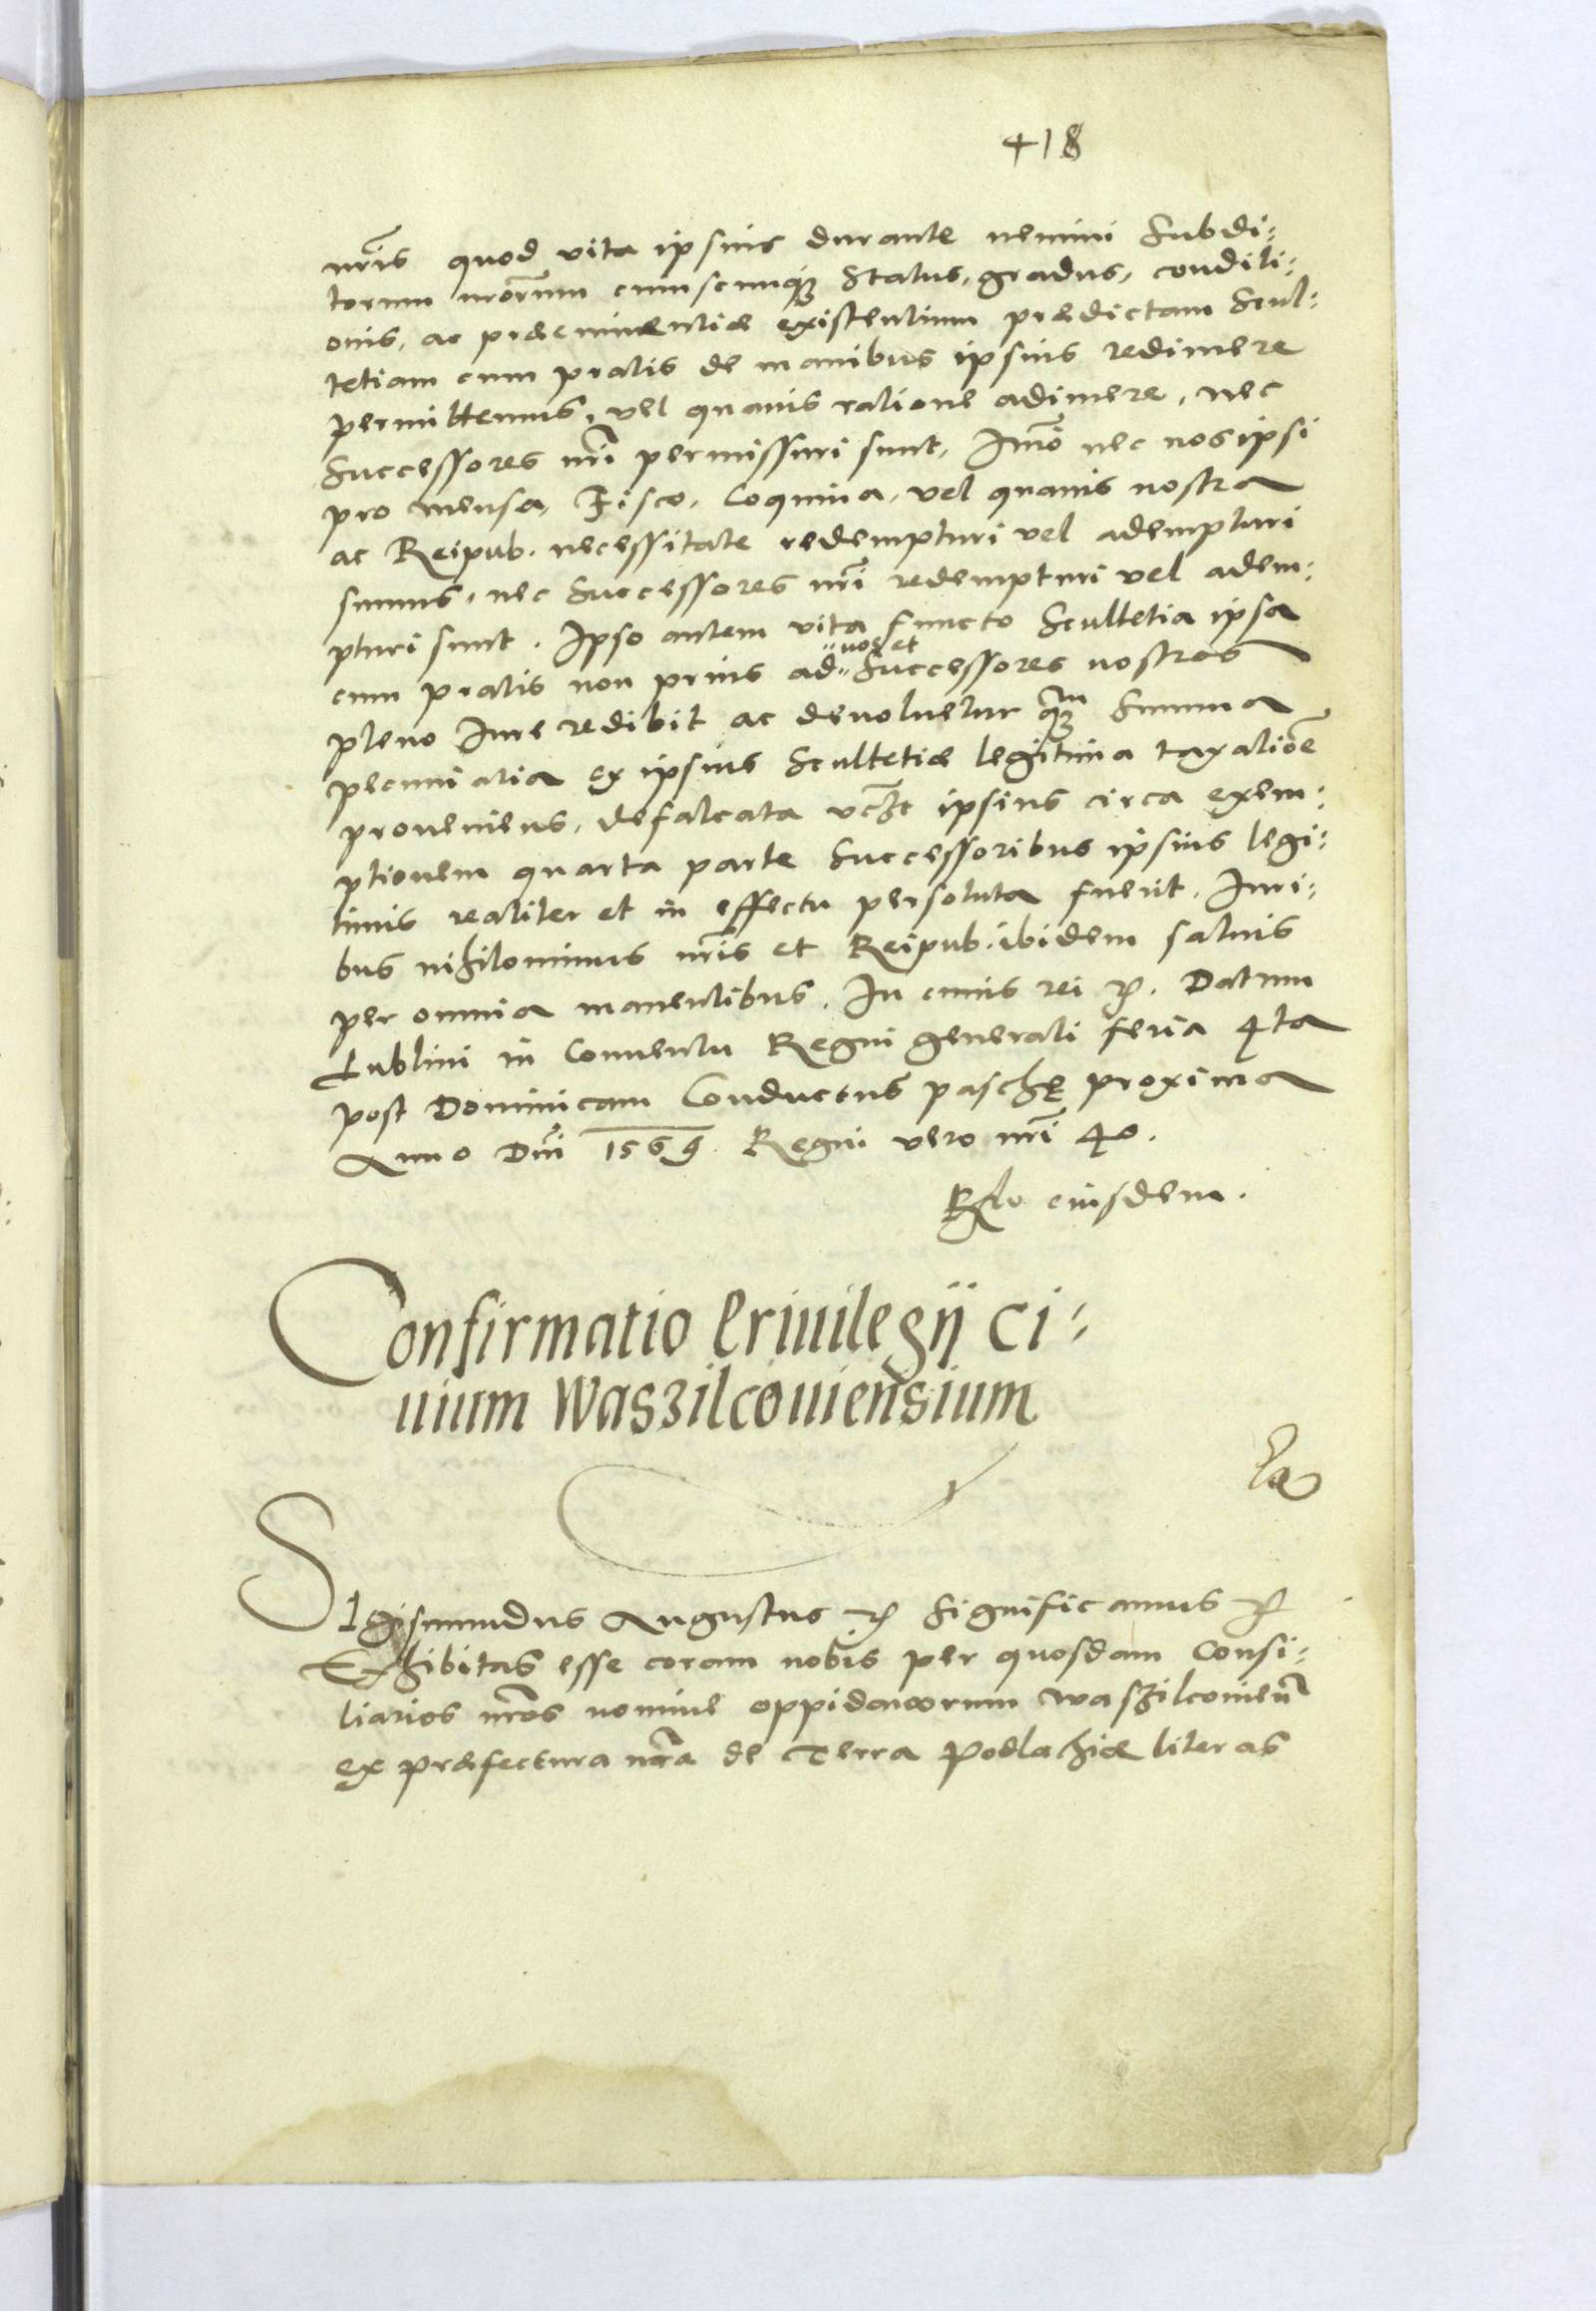 418
nrīs quod vita ipsius durante nemini Subdi:
torum nrōrum cuiuscunq3 Status, gradus, conditi:
onis, ac præeminentiæ existentium prædictam Scul:
tetiam cum pratis de manibus ipsius redimere
permittemus, vel quauis ratione adimere, nec
Successores nrī permissuri sunt, Imō nec nos ipsi
pro mensa, Fisco, Coquina, vel quauis nostra
ac Reipub. necessitate redempturi vel adempturi
sumus, nec Successores nrī redempturi vel adem:
pturi sunt. Ipso autem vita functo Scultetia ipsa
cum pratis non prius ad nos et Successores nostros
pleno Iure redibit ac deuoluetur qm̄ Summa
pecuniaria ex ipsius Scultetiæ legitima taxatioē
proueniens, defalcata vc3t ipsius circa exem:
ptionem quarta parte Successoribus ipsius legi:
timis realiter et in effectu persoluta fuerit. Iuri:
bus nihilominus nrīs et Reipub. ibidem saluis
per omnia manentibus. In cuius rei etc. Datum
Lublini in Conuentu Regni generali feria 4ta
post Dominicam Conductus paschę proxima
Anno Dnī 1569 Regni vero nrī 40.
Rlo eiusdem.
Confirmatio Priuilegij Ci:
uium Waszilcouiensium
Sigismundus Augustus etc Significamus etc
Exhibitas esse coram nobis per quosdam Consi:
liarios nrōs nomine oppidanorum Waszilcouieñ
ex præfectura nrā de Terra Podlachiæ literas